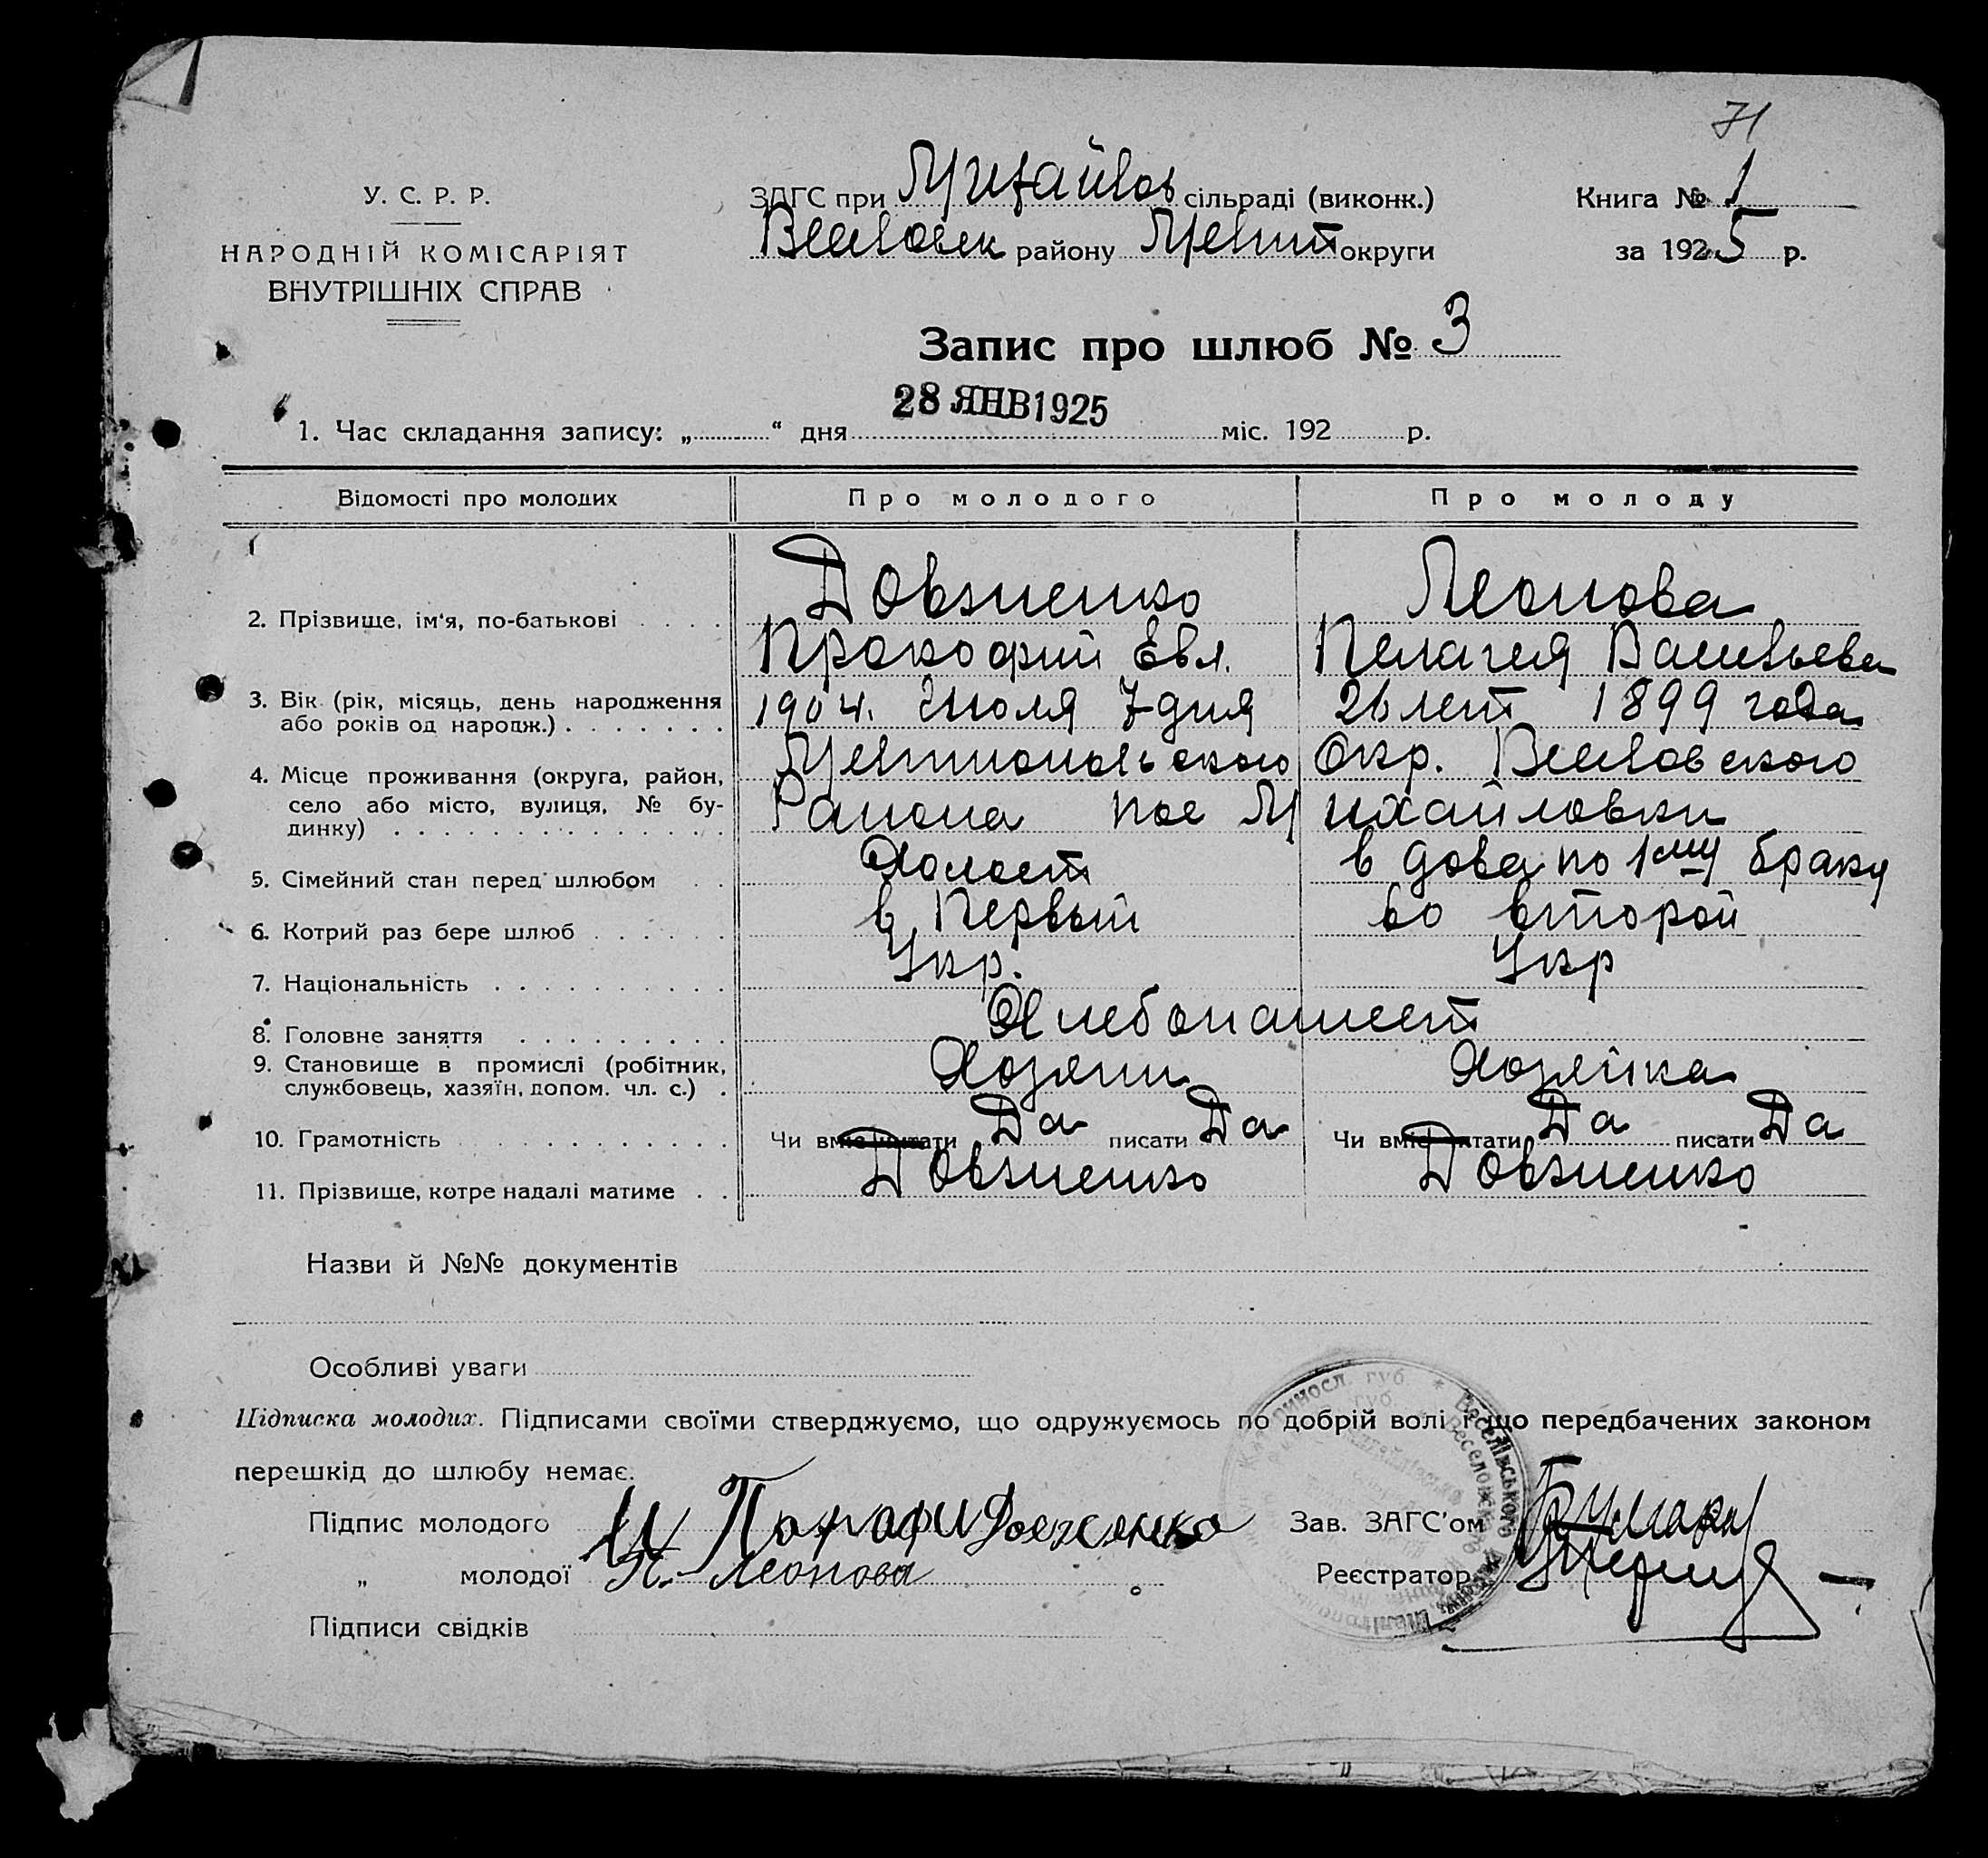 71
У. С. Р. Р.
НАРОДНІЙ КОМІСАРІЯТ
ВНУТРІШНІХ СПРАВ
ЗАГС при Михайлов сільраді (виконк.)
Веселовск району Мелит округи
Книга № 1
за 1925 р.
Запис про шлюб № 3
28 ЯНВ 1925
1. Час складання запису: „ “ дня міс. 192 р.
Відомості про молодих Про молодого Про молоду
2. Прізвище, ім'я, по-батькові Довженко Леонова
Прокофий Евл. Пелагея Васильева
3. Вік (рік, місяць, день народження або років од народж.) 1904. Июля 7 дня 26 лет 1899 года
4. Місце проживання (округа, район, село або місто, вулиця, № будинку) Мелитопольского Окр. Веселовского
Района пос Михайловки
5. Сімейний стан перед шлюбом Холост вдова по 1му браку
6. Котрий раз бере шлюб в Первый во второй
7. Національність Укр. Укр
8. Головне заняття Хлебопашест
9. Становище в промислі (робітник, службовець, хазяїн, допом. чл. с.) Хозяин Хозяйка
10. Грамотність Чи вміє читати Да писати Да Чи вміє читати Да писати Да
11. Прізвище, котре надалі матиме Довженко Довженко
Назви й №№ документів
Особливі уваги
Підписка молодих. Підписами своїми стверджуємо, що одружуємось по добрій волі і що передбачених законом
перешкід до шлюбу немає.
Підпис молодого Довженко Зав. ЗАГС'ом
„ молодої П. Леонова Реєстратор
Підписи свідків